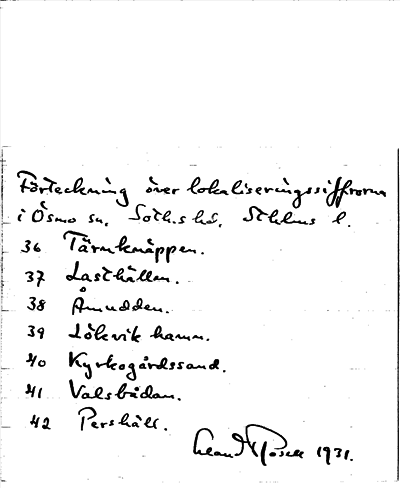 Förteckning över lokaliseringssiffrorna
i Ösmo sn, Soth.s hd, Sthlms l.
36 Tärnknäppen.
37 Lasthällen.
38 Åmudden.
39 Lökvik hamn.
40 Kyrkogårdssand.
41 Valsbådan.
42 Pershäll.
1931.